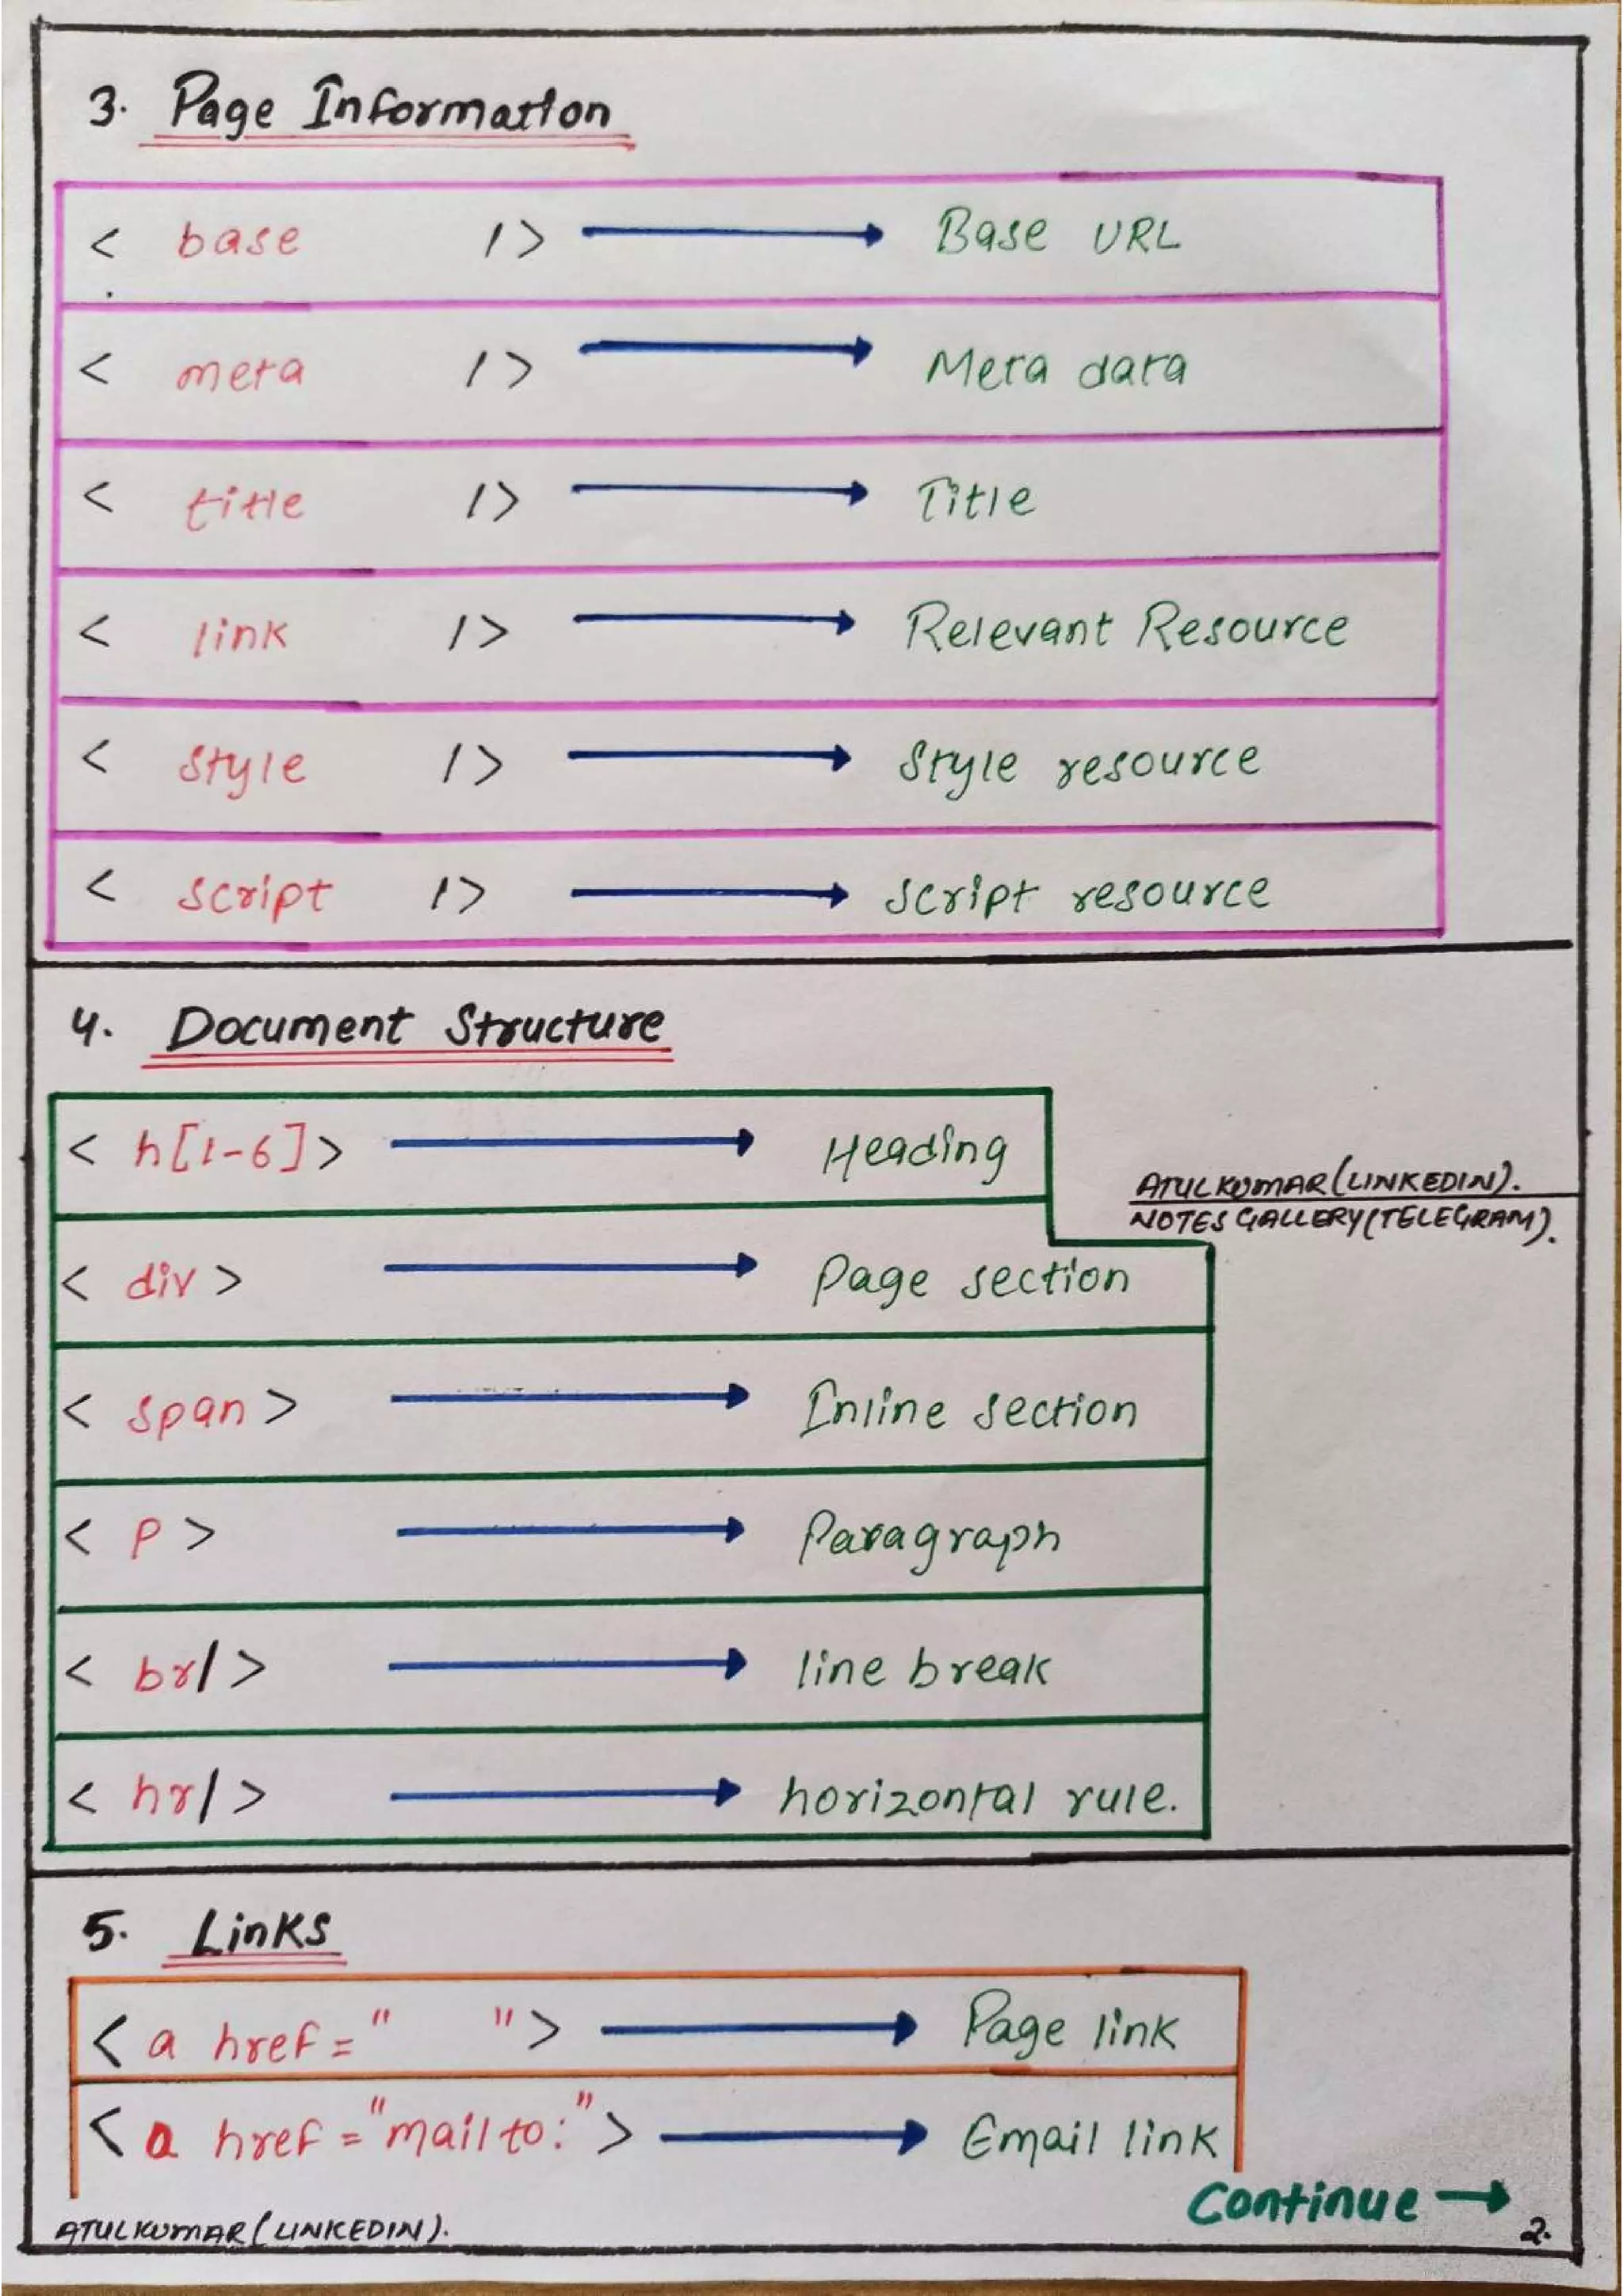 3. Page Information
< base /> Base URL
< meta /> Meta data
< title /> Title
< link /> Relevant Resource
< style /> Style resource
< script /> script resource
4. Document Structure
< h[1-6]> Heading
ATUL KUMAR (LINKEDIN).
NOTES GALLERY (TELEGRAM).
< div > Page section
< span > Inline section
< p > Paragraph
< br/> line break
< hr/> horizontal rule.
5. Links
< a href = " "> Page link
< a href = "mail to:"> Email link
Continue →
ATUL KUMAR (LINKEDIN).
2.